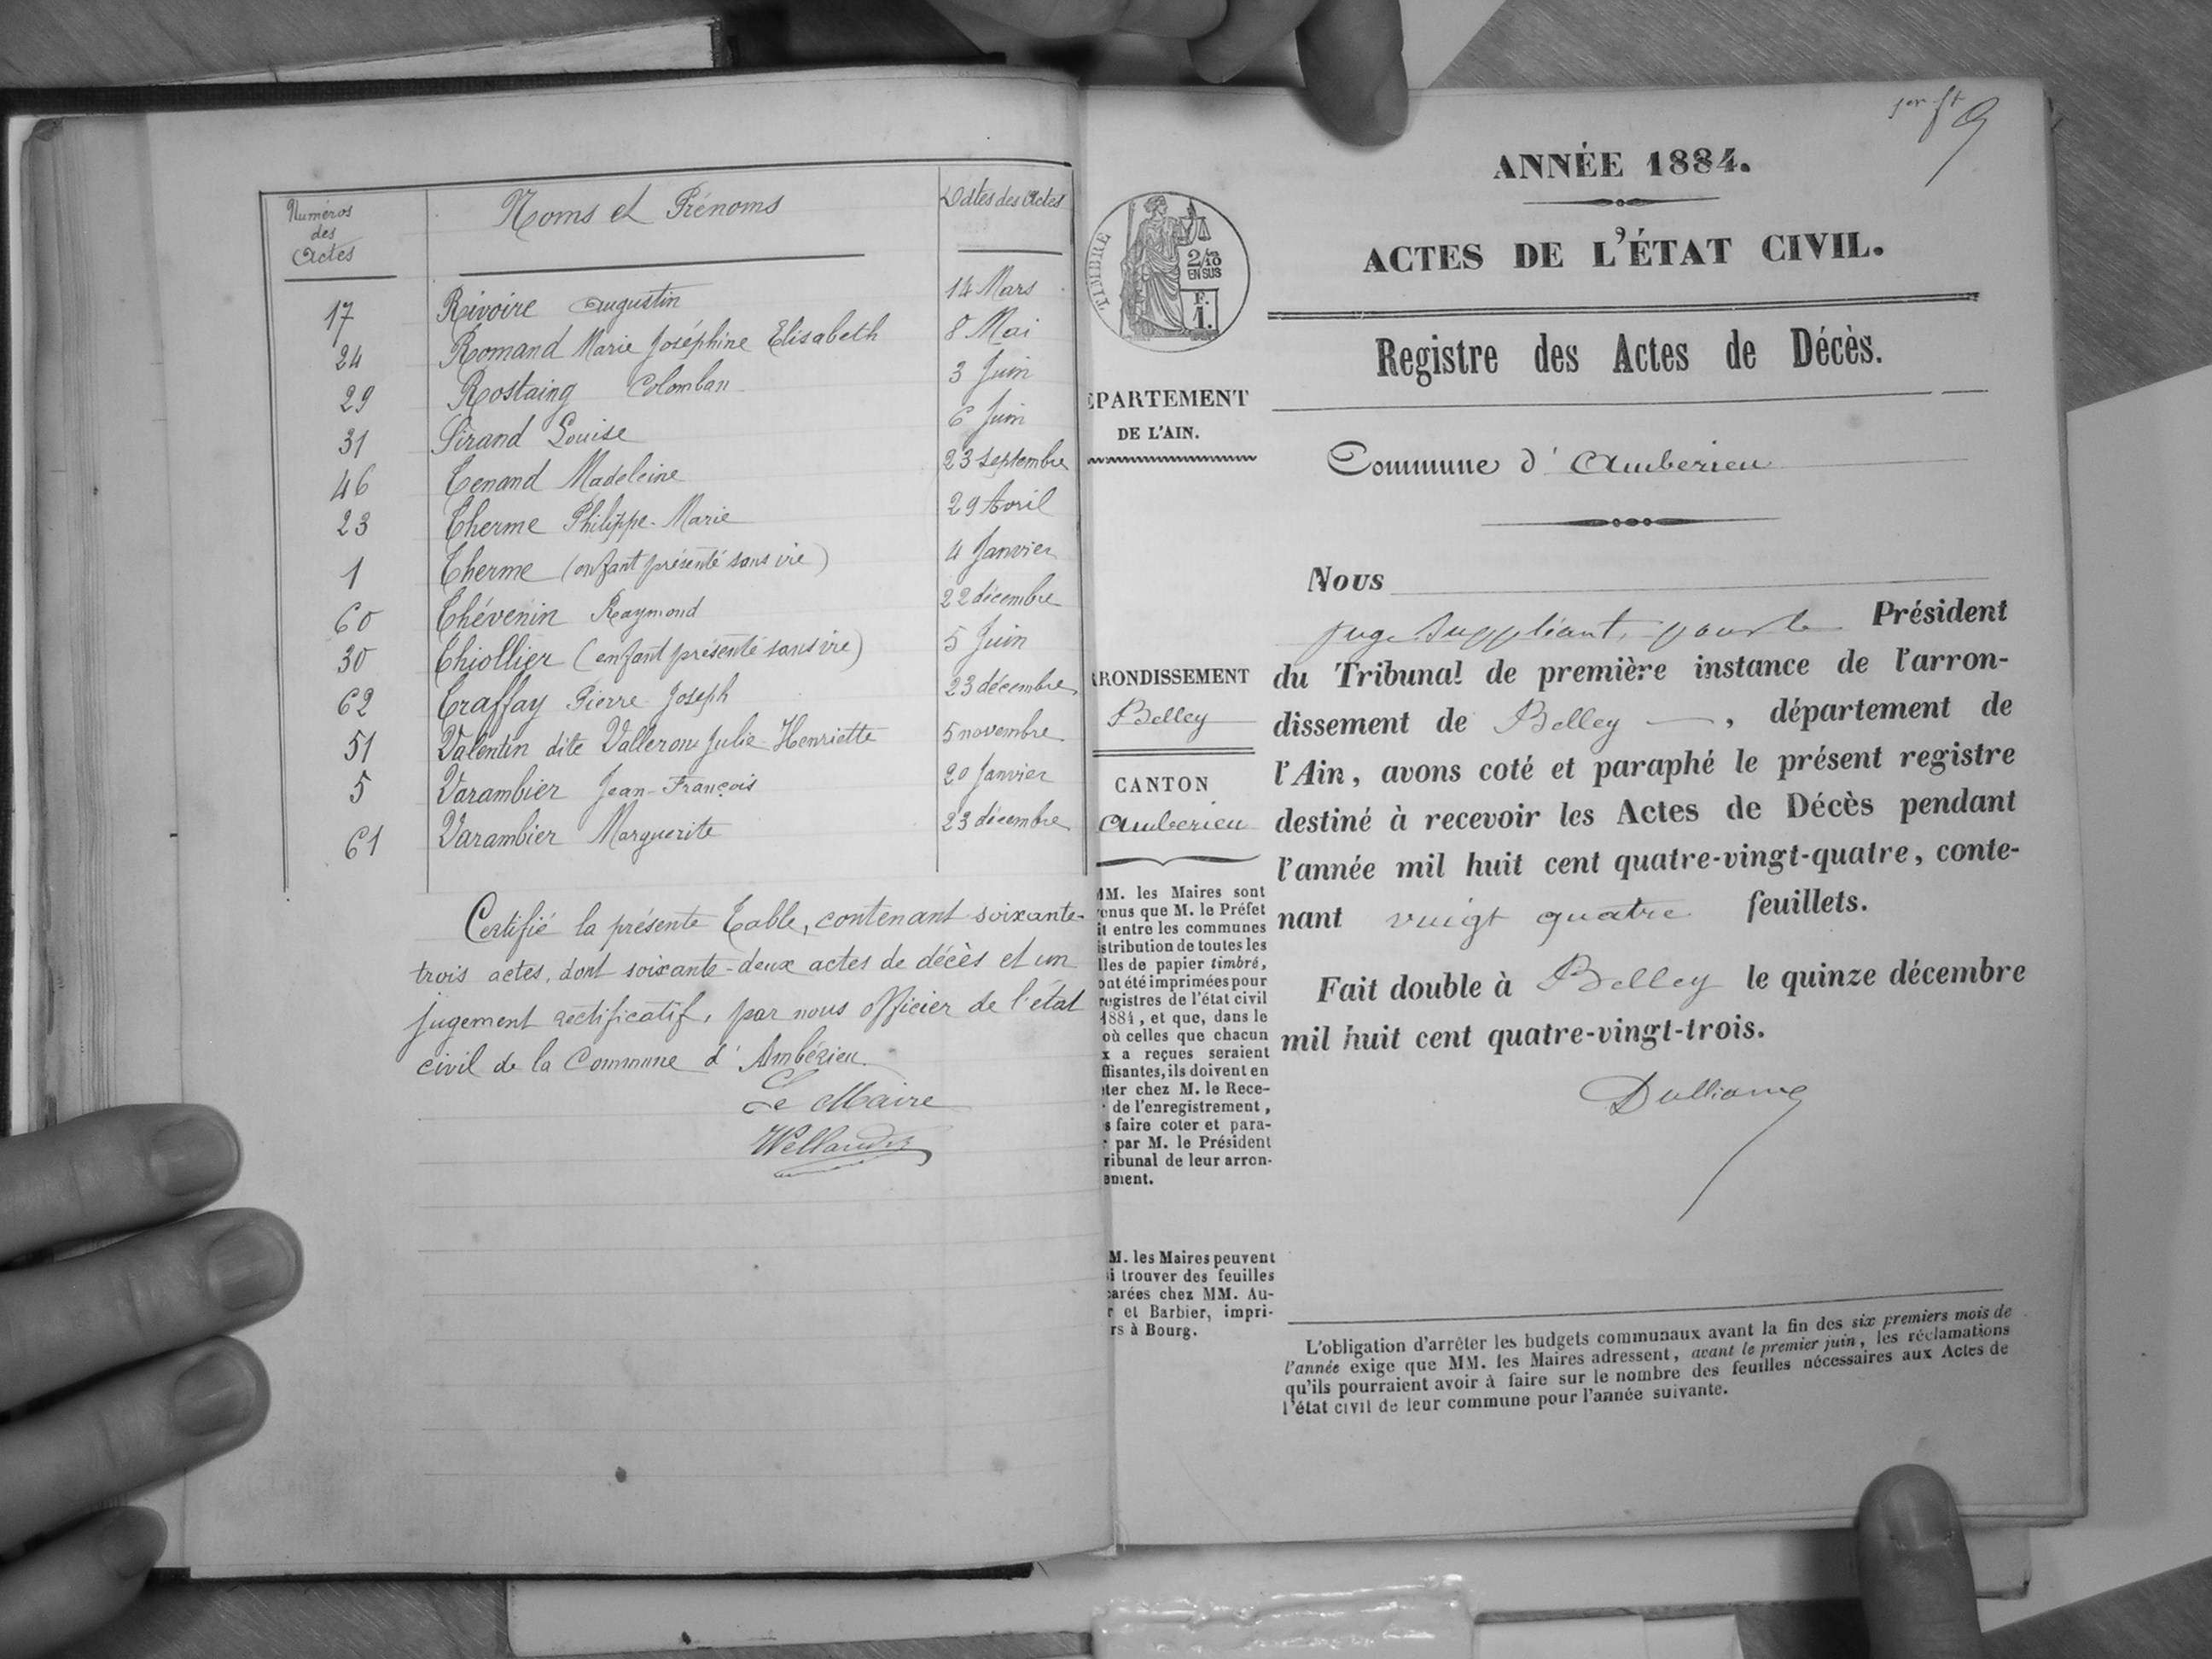 Numéros
des
Actes
Noms et Prénoms
Dates des Actes
17 Rivoire Augustin 14 Mars
24 Romand Marie Joséphine Elisabeth 8 Mai
29 Rostaing Colomban 3 Juin
31 Sirand Louise 6 Juin
46 Tenand Madeleine 23 septembre
23 Therme Philippe-Marie 29 Avril
1 Therme (enfant présenté sans vie) 4 Janvier
60 Thévenin Raymond 22 décembre
30 Thiollier (enfant présenté sans vie) 5 Juin
62 Traffay Pierre Joseph 23 décembre
51 Valentin dite Valleron Julie-Henriette 5 novembre
5 Varambier Jean-François 20 Janvier
61 Varambier Marguerite 23 décembre
Certifié la présente Table, contenant soixante-
trois actes, dont soixante-deux actes de décès et un
jugement rectificatif, par nous officier de l'état
civil de la Commune d'Ambérieu
Le Maire
1er ft
ANNÉE 1884.
ACTES DE L'ÉTAT CIVIL.
Registre des Actes de Décès.
Commune d'Amberieu
TIMBRE
2/10
EN SUS
F.
1.
ÉPARTEMENT
DE L'AIN.
RRONDISSEMENT
Belley
CANTON
Amberieu
MM. les Maires sont
enus que M. le Préfet
it entre les communes
istribution de toutes les
lles de papier timbré,
ont été imprimées pour
registres de l'état civil
1884, et que, dans le
où celles que chacun
x a reçues seraient
ffisantes, ils doivent en
ter chez M. le Rece-
de l'enregistrement,
s faire coter et para-
r par M. le Président
ribunal de leur arron-
ement.
M. les Maires peuvent
i trouver des feuilles
parées chez MM. Au-
r et Barbier, impri-
rs à Bourg.
Nous
juge suppléant, pour le Président
du Tribunal de première instance de l'arron-
dissement de Belley, département de
l'Ain, avons coté et paraphé le présent registre
destiné à recevoir les Actes de Décès pendant
l'année mil huit cent quatre-vingt-quatre, conte-
nant vingt quatre feuillets.
Fait double à Belley le quinze décembre
mil huit cent quatre-vingt-trois.
L'obligation d'arrêter les budgets communaux avant la fin des six premiers mois de
l'année exige que MM. les Maires adressent, avant le premier juin, les réclamations
qu'ils pourraient avoir à faire sur le nombre des feuilles nécessaires aux Actes de
l'état civil de leur commune pour l'année suivante.